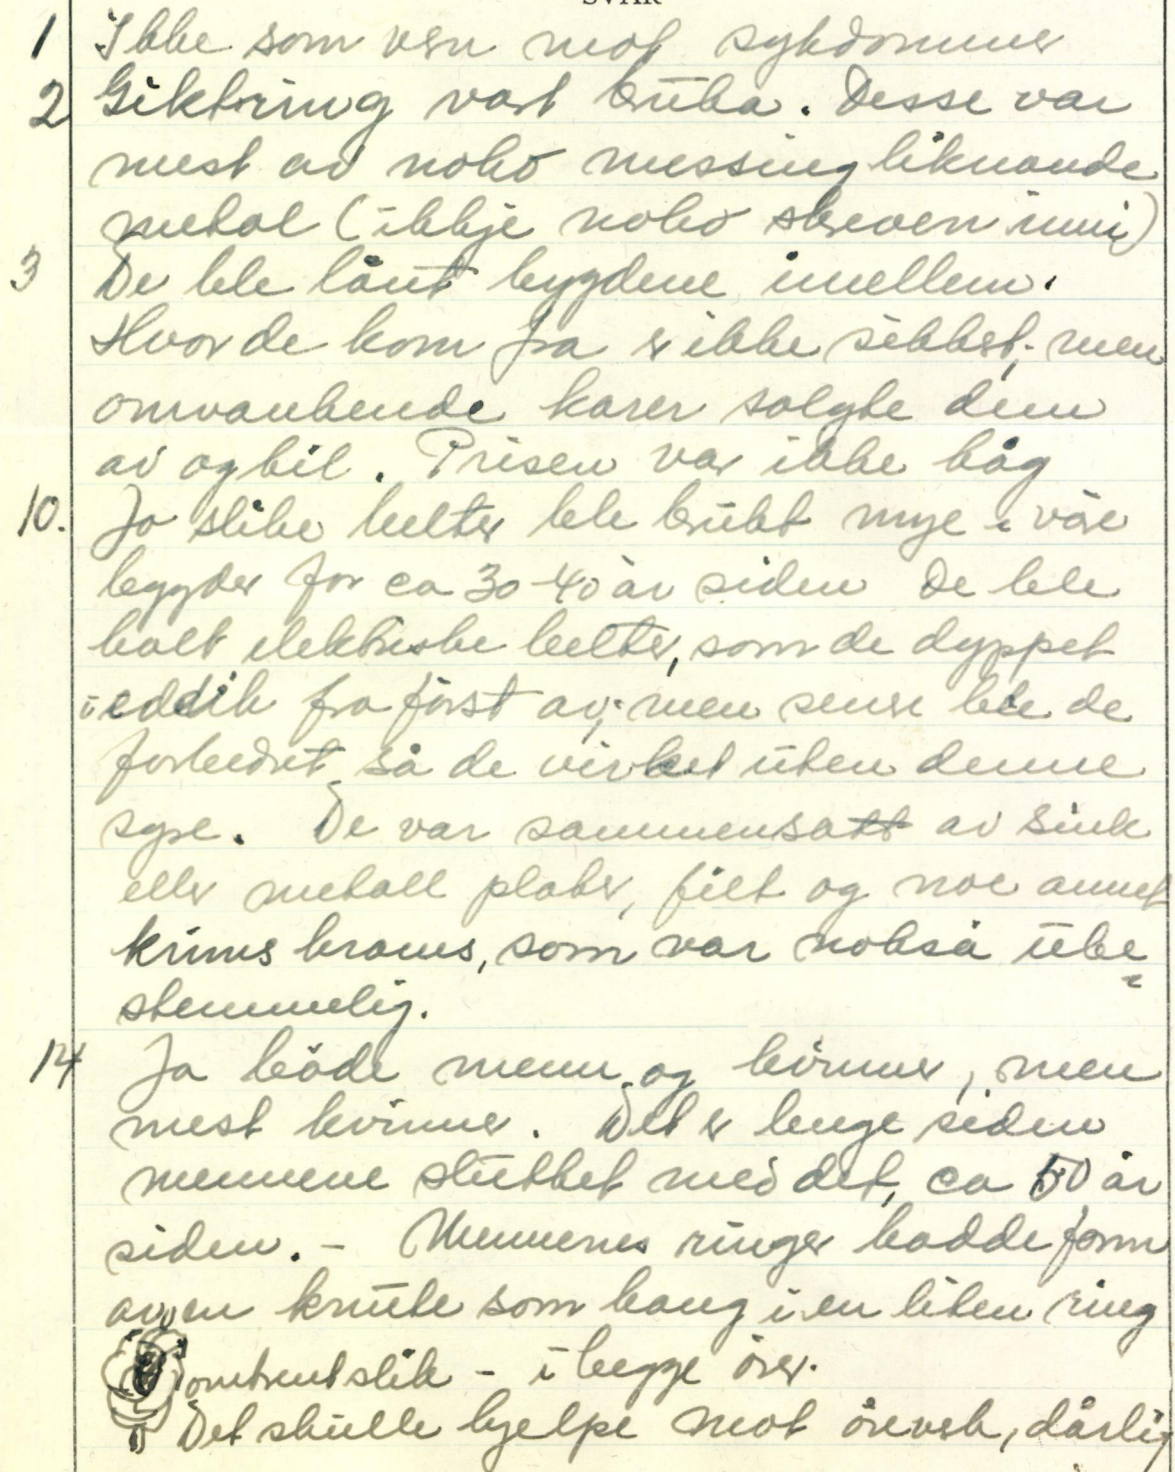 SVAR
1 Ikke som vern mot sykdommer
2 Giktring vart bruka. Desse var
mest av noko messing liknande
metal (ikkje noko skreven inni)
3 De ble lånt bygdene imellem.
Hvor de kom fra er ikke sikkert; men
omvankende karer solgte dem
av og til. Prisen var ikke håg
10. Ja slike belter ble brukt mye i våre
bygder for ca 30-40 år siden De ble
kalt elektriske belter, som de dyppet
i eddik fra først av; men senere ble de
forbedret så de virket uten denne
syre. De var sammensatt av sink
eller metall plater, filt og noe annet
krims krams, som var nokså ube
=
stemmelig.
14 Ja både menn og kvinner, men
mest kvinner. Det er lenge siden
mennene sluttet med det, ca 50 år
siden. - Mennenes ringer hadde form
av en knute som hang i en liten ring
omtrent slik - i begge ører.
Det skulle hjelpe mot öreverk, dårlig